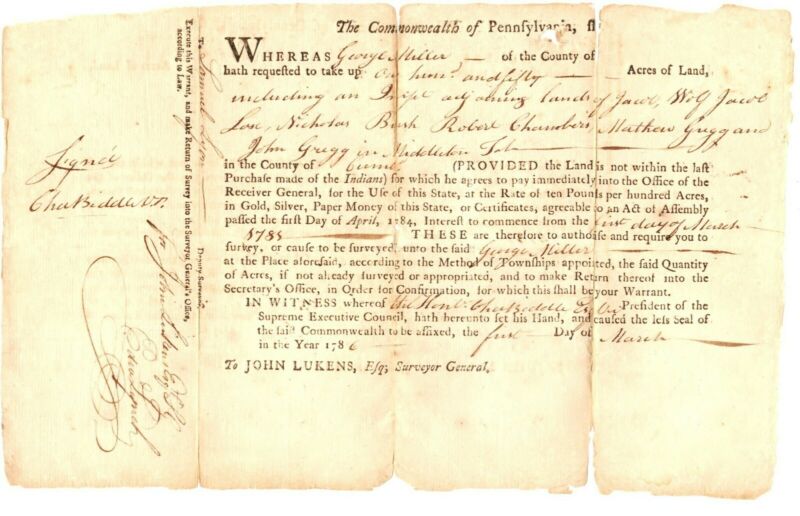 The Commonwealth of Pennsylvania, ss
WHEREAS George Miller of the County of
hath requested to take up One hund and fifty Acres of Land,
including an adjoining lands of Jacob Wolf Jacob
Lose, Nicholas Bush Robert Chambers, Mathew Gregg and
John Gregg in Middleton
in the County of Cumb (PROVIDED the Land is not within the last
Purchase made of the Indians) for which he agrees to pay immediately into the Office of the
Receiver General, for the Use of this State, at the Rate of ten Pounds per hundred Acres,
in Gold, Silver, Paper Money of this State, or Certificates, agreeable to an Act of Assembly
passed the first Day of April, 1784, Interest to commence from the first day of March
THESE are therefore to authorise and require you to
survey, or cause to be surveyed, unto the said George Miller
at the Place aforesaid, according to the Method of Townships appointed, the said Quantity
of Acres, if not already surveyed or appropriated, and to make Return thereof into the
Secretary's Office, in Order for Confirmation, for which this shall be your Warrant.
IN WITNESS whereof the Honble Cha Biddle Esq President of the
Supreme Executive Council, hath hereunto set his Hand, and caused the less Seal of
the said Commonwealth to be affixed, the first Day of March
in the Year 1786
To JOHN LUKENS, Esq; Surveyor General.
Signed
Cha Biddle V.P.
To Samuel Lyon Deputy Surveyor,
Execute this Warrant, and make Return of Survey into the Surveyor General's Office,
according to Law.
for John Lukens Esq S.G.
Edw Lynch